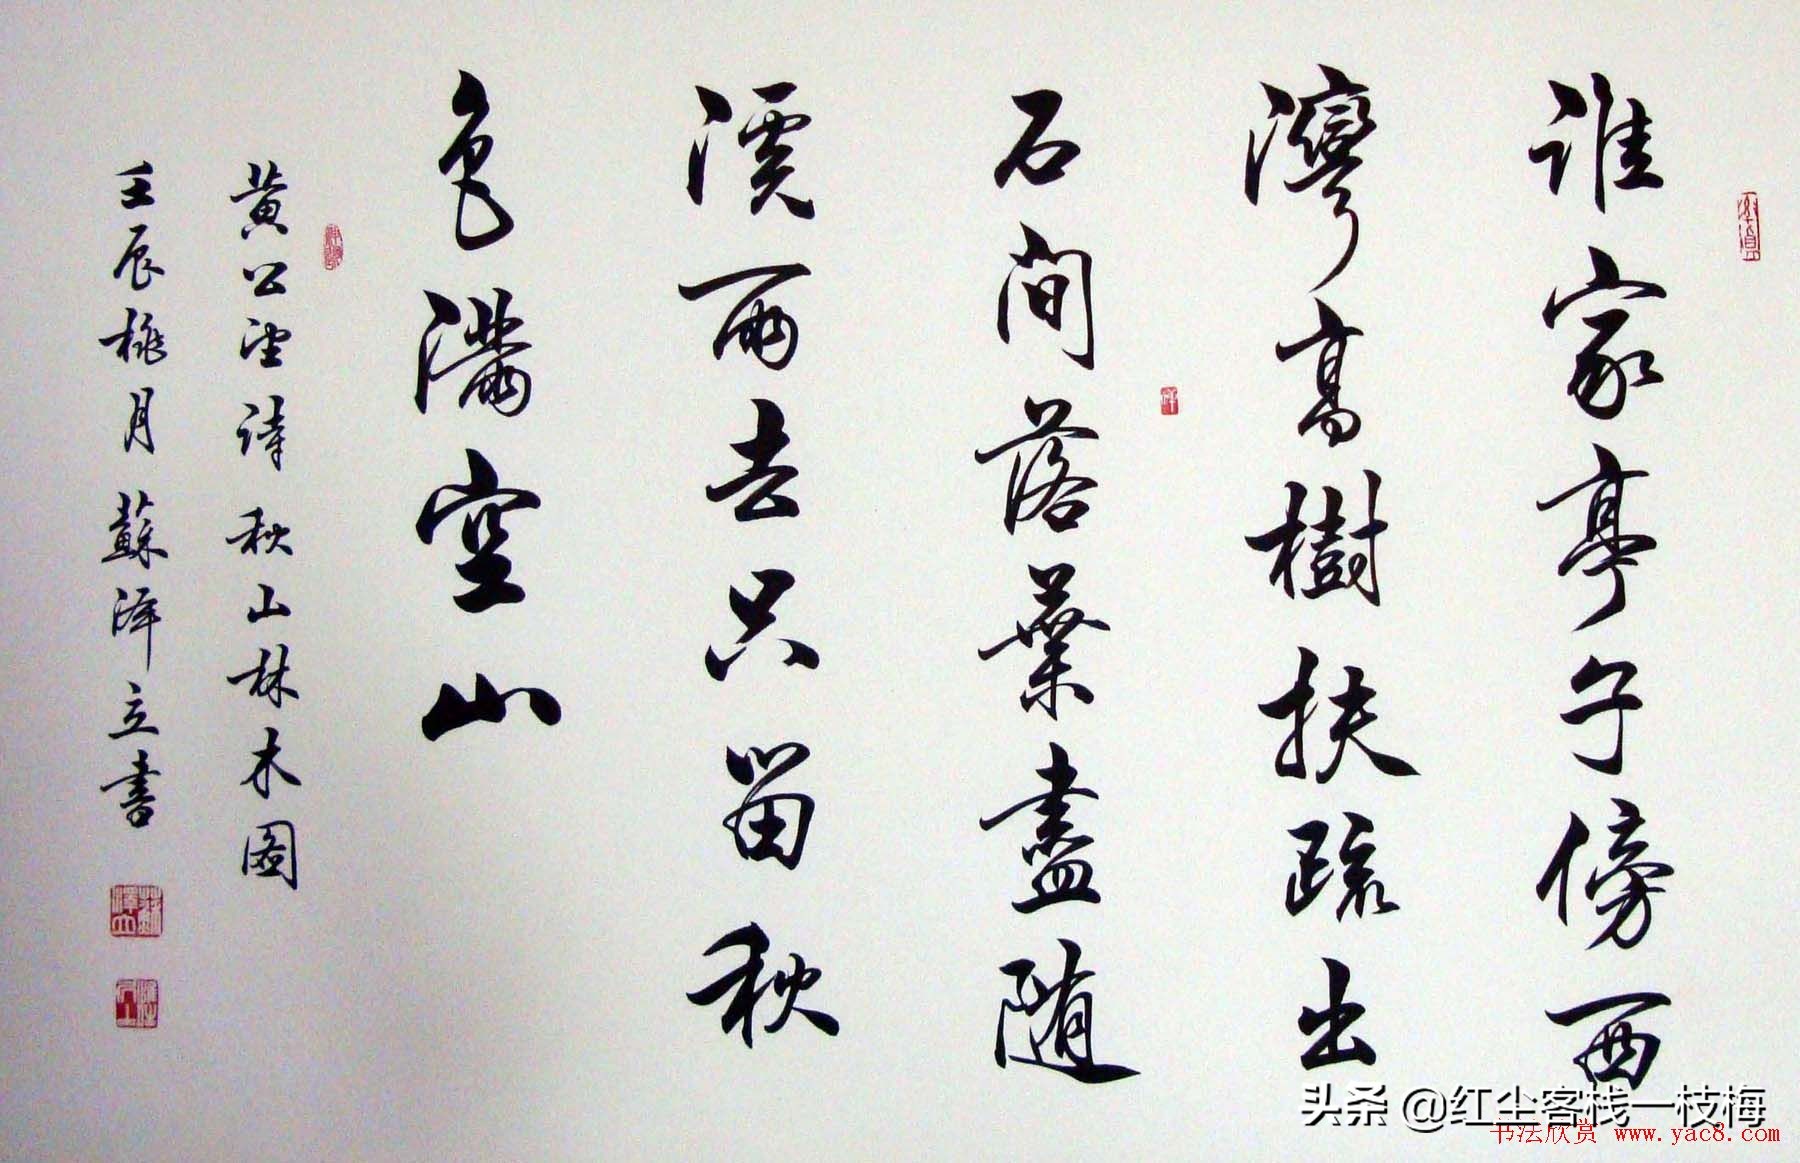 谁家亭子傍西
灣高樹扶疏出
石间落葉盡随
溪雨去只留秋
色滿空山
黄公望詩秋山林木图
壬辰桃月蘇泽立書
头条 @红尘客栈一枝梅
书法欣赏 www.yac8.com